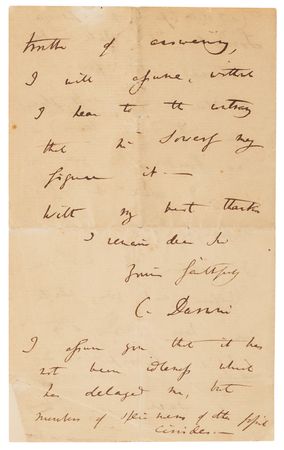 trouble of answering,
I will assume, without
I hear to the contrary
that Mr Sowerby may
figure it —
With my best thanks
I remain dear Sir
Yours faithfully
C. Darwin
I assure you that it has
not been idleness which
has delayed me, but
numbers of specimens of other fossil